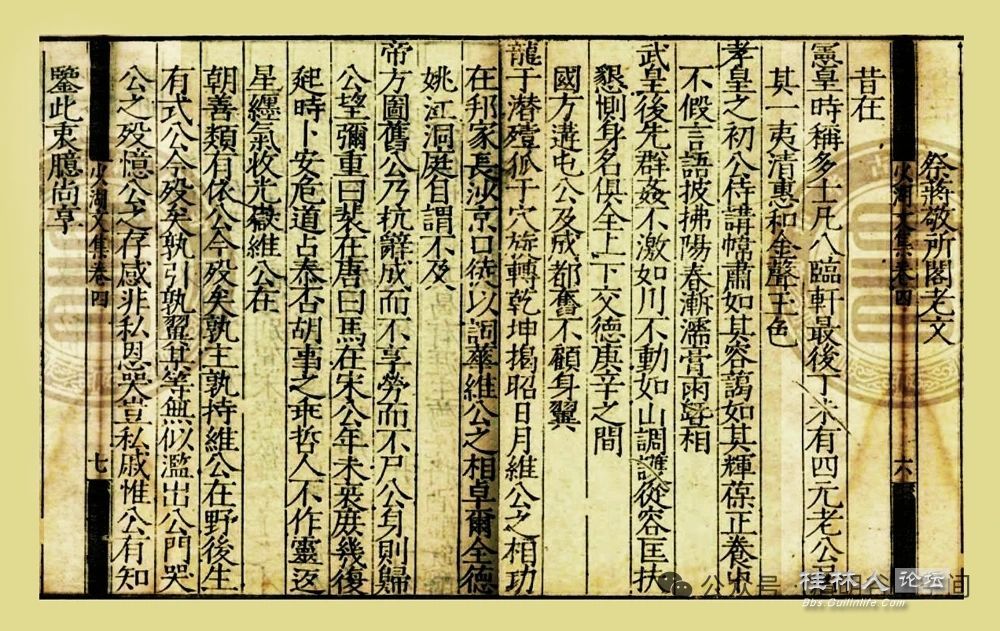 祭蔣敬所閣老文
少湖文集卷四
六
昔在
憲皇時稱多士凡八臨軒最後丁未有四元老公居
其一夷清惠和金聲玉色
孝皇之初公侍講幄肅如其容藹如其輝葆正養中
不假言語披拂陽春漸濡膏雨暨相
武皇後先群姦不激如川不動如山調護從容匡扶
懇惻身名俱全上下交德庚辛之間
國方遘屯公及成都奮不顧身翼
龍于潛殪狐于穴旋轉乾坤揭昭日月維公之相功
在邦家長沙京口徒以詞華維公之相卓爾全德
姚江洞庭自謂不及
帝方圖舊公乃抗辭成而不享勞而不尸公身則歸
公望彌重曰裴在唐曰馬在宋公年未衰庶幾復
起時卜安危道占泰否胡事之乖哲人不作靈返
星纏氣收光嶽維公在
朝善類有依公今歿矣孰主孰持維公在野後生
有式公今歿矣孰引孰翼某等無似濫出公門哭
公之歿憶公之存感非私恩哭豈私戚惟公有知
少湖文集卷四
七
鑒此衷臆尚享
公众号
间
桂林人论坛
Bbs.Guilinlife.Com